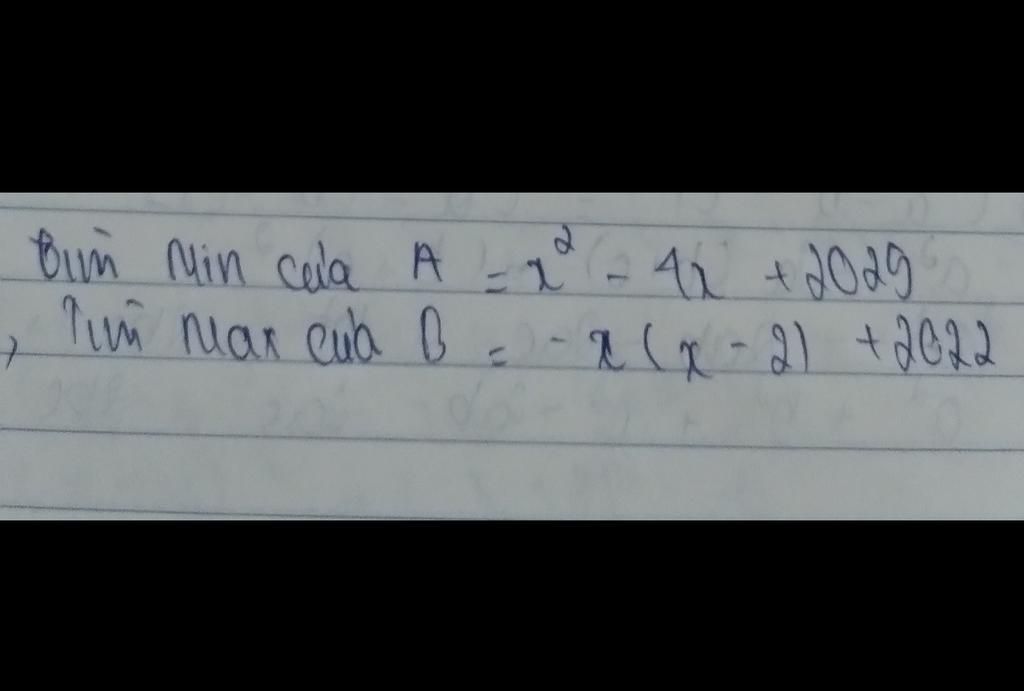 Tìm Min của A = x² - 4x + 2029
, Tìm Max của B = - x (x - 2) + 2022